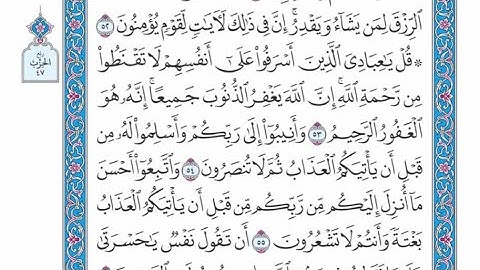 الرِّزْقَ لِمَن يَشَآءُ وَيَقْدِرُ ۚ إِنَّ فِى ذَٰلِكَ لَءَايَٰتٍ لِّقَوْمٍ يُؤْمِنُونَ ٥٢
۞ قُلْ يَٰعِبَادِىَ ٱلَّذِينَ أَسْرَفُوا۟ عَلَىٰٓ أَنفُسِهِمْ لَا تَقْنَطُوا۟
مِن رَّحْمَةِ ٱللَّهِ ۚ إِنَّ ٱللَّهَ يَغْفِرُ ٱلذُّنُوبَ جَمِيعًا ۚ إِنَّهُۥ هُوَ
ٱلْغَفُورُ ٱلرَّحِيمُ ٥٣ وَأَنِيبُوٓا۟ إِلَىٰ رَبِّكُمْ وَأَسْلِمُوا۟ لَهُۥ مِن
قَبْلِ أَن يَأْتِيَكُمُ ٱلْعَذَابُ ثُمَّ لَا تُنصَرُونَ ٥٤ وَٱتَّبِعُوٓا۟ أَحْسَنَ
مَآ أُنزِلَ إِلَيْكُم مِّن رَّبِّكُم مِّن قَبْلِ أَن يَأْتِيَكُمُ ٱلْعَذَابُ
بَغْتَةً وَأَنتُمْ لَا تَشْعُرُونَ ٥٥ أَن تَقُولَ نَفْسٌ يَٰحَسْرَتَىٰ
ربع
الحزب
٤٧